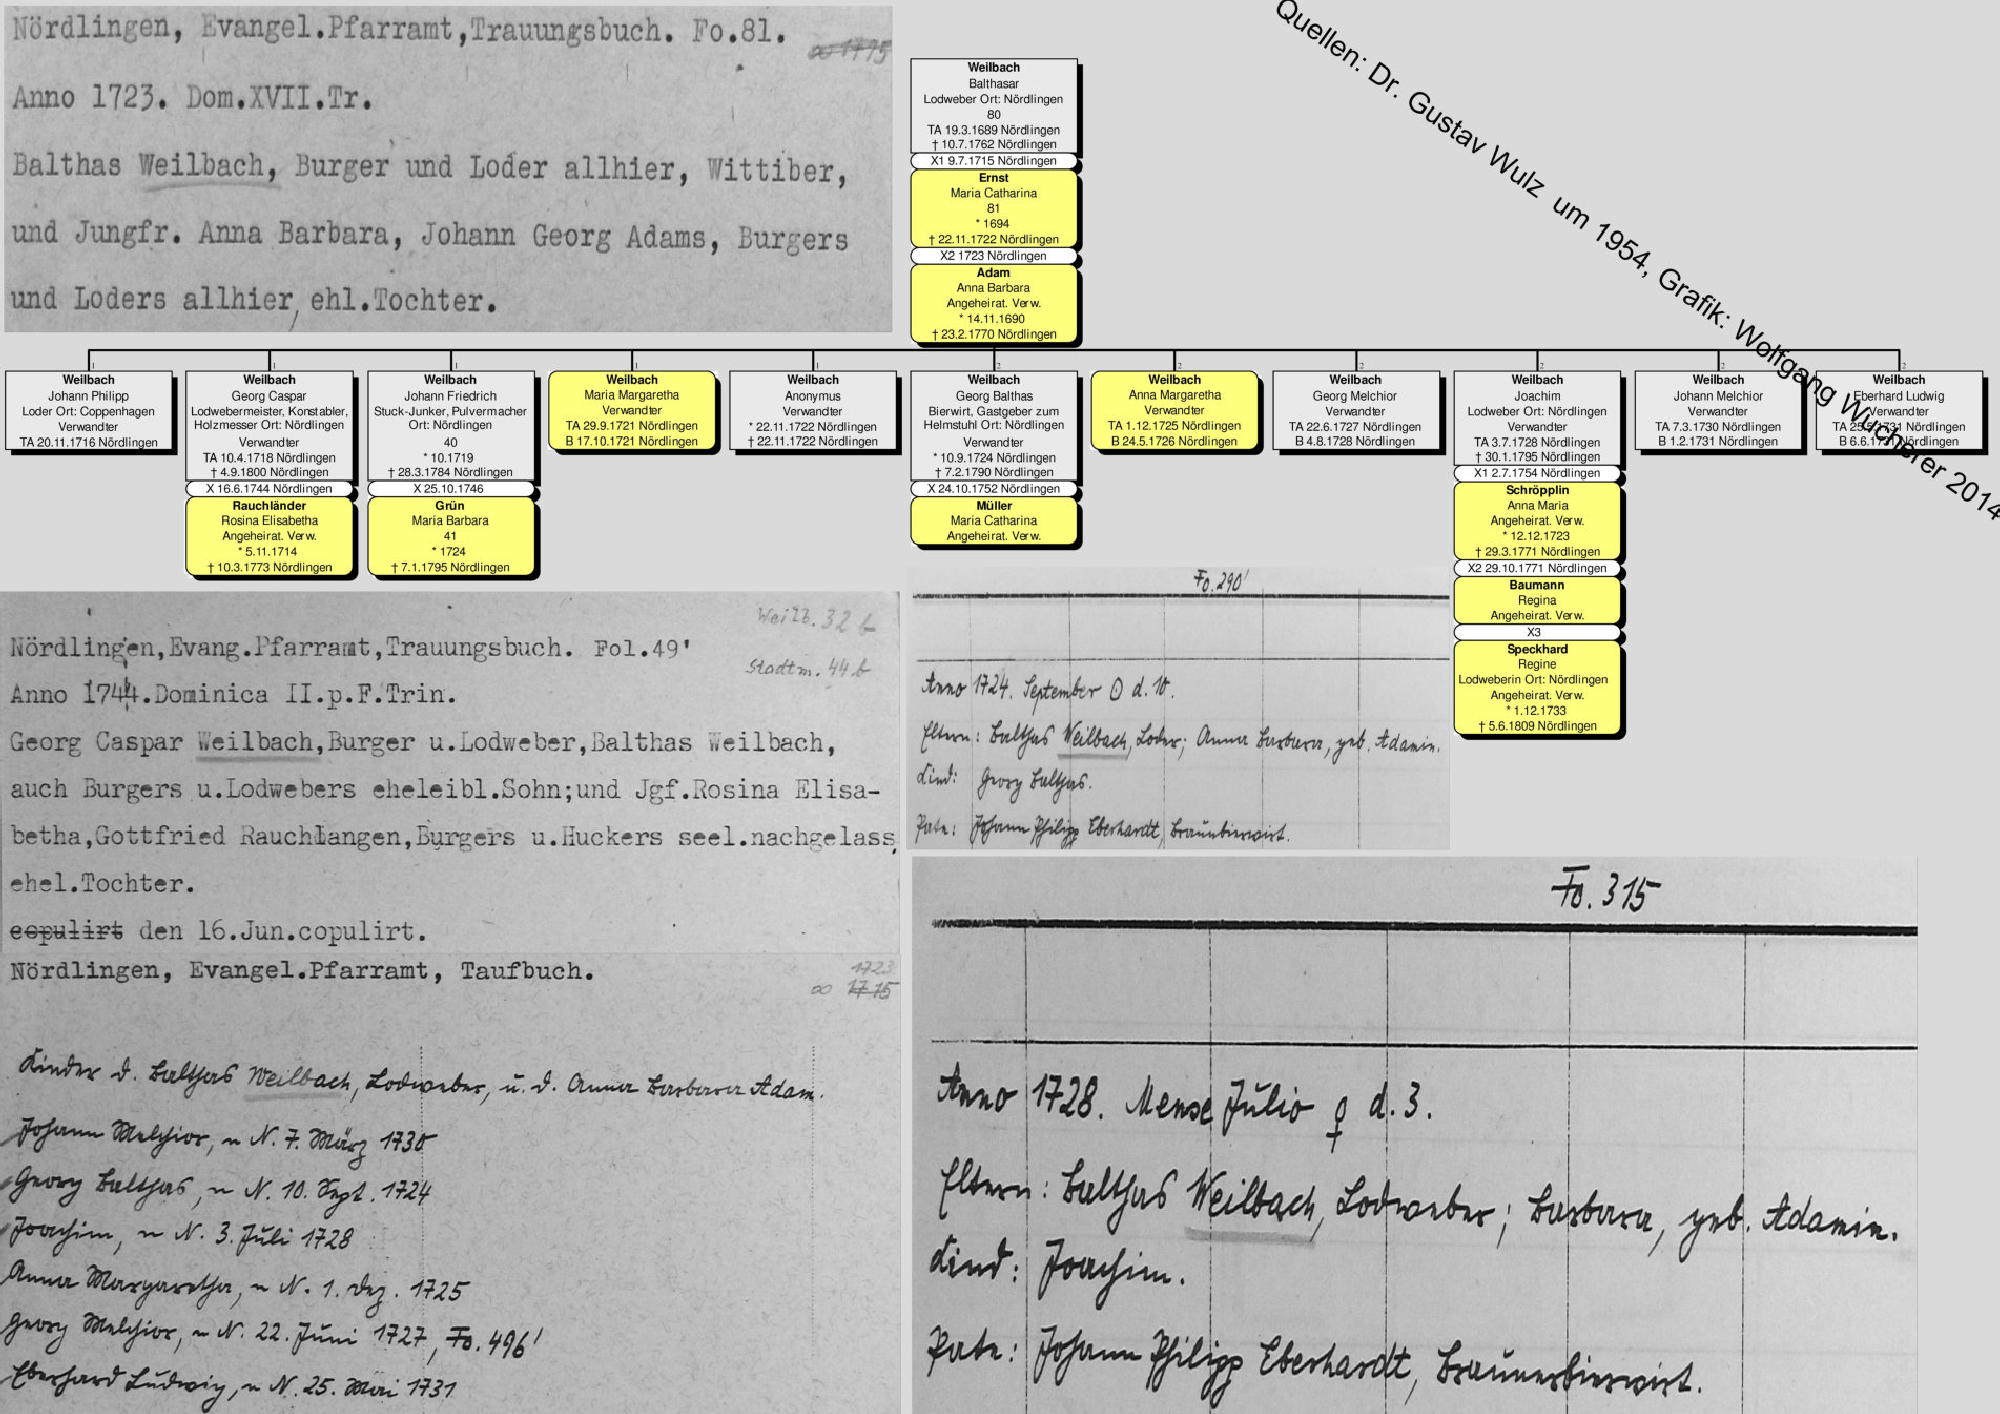 Nördlingen, Evangel.Pfarramt,Trauungsbuch. Fo.81.
∞ 1715
Anno 1723. Dom.XVII.Tr.
Balthas Weilbach, Burger und Loder allhier, Wittiber,
und Jungfr. Anna Barbara, Johann Georg Adams, Burgers
und Loders allhier, ehl.Tochter.
Quellen: Dr. Gustav Wulz um 1954, Grafik: Wolfgang Wucherer 2014
Weilbach
Balthasar
Lodweber Ort: Nördlingen
80
TA 19.3.1689 Nördlingen
† 10.7.1762 Nördlingen
X1 9.7.1715 Nördlingen
Ernst
Maria Catharina
81
* 1694
† 22.11.1722 Nördlingen
X2 1723 Nördlingen
Adam
Anna Barbara
Angeheirat. Verw.
* 14.11.1690
† 23.2.1770 Nördlingen
1
Weilbach
Johann Philipp
Loder Ort: Coppenhagen
Verwandter
TA 20.11.1716 Nördlingen
1
Weilbach
Georg Caspar
Lodwebermeister, Konstabler,
Holzmesser Ort: Nördlingen
Verwandter
TA 10.4.1718 Nördlingen
† 4.9.1800 Nördlingen
X 16.6.1744 Nördlingen
Rauchländer
Rosina Elisabetha
Angeheirat. Verw.
* 5.11.1714
† 10.3.1773 Nördlingen
1
Weilbach
Johann Friedrich
Stuck-Junker, Pulvermacher
Ort: Nördlingen
40
* 10.1719
† 28.3.1784 Nördlingen
X 25.10.1746
Grün
Maria Barbara
41
* 1724
† 7.1.1795 Nördlingen
1
Weilbach
Maria Margaretha
Verwandter
TA 29.9.1721 Nördlingen
B 17.10.1721 Nördlingen
1
Weilbach
Anonymus
Verwandter
* 22.11.1722 Nördlingen
† 22.11.1722 Nördlingen
2
Weilbach
Georg Balthas
Bierwirt, Gastgeber zum
Helmstuhl Ort: Nördlingen
Verwandter
* 10.9.1724 Nördlingen
† 7.2.1790 Nördlingen
X 24.10.1752 Nördlingen
Müller
Maria Catharina
Angeheirat. Verw.
2
Weilbach
Anna Margaretha
Verwandter
TA 1.12.1725 Nördlingen
B 24.5.1726 Nördlingen
2
Weilbach
Georg Melchior
Verwandter
TA 22.6.1727 Nördlingen
B 4.8.1728 Nördlingen
2
Weilbach
Joachim
Lodweber Ort: Nördlingen
Verwandter
TA 3.7.1728 Nördlingen
† 30.1.1795 Nördlingen
X1 2.7.1754 Nördlingen
Schröpplin
Anna Maria
Angeheirat. Verw.
* 12.12.1723
† 29.3.1771 Nördlingen
X2 29.10.1771 Nördlingen
Baumann
Regina
Angeheirat. Verw.
X3
Speckhard
Regine
Lodweberin Ort: Nördlingen
Angeheirat. Verw.
* 1.12.1733
† 5.6.1809 Nördlingen
2
Weilbach
Johann Melchior
Verwandter
TA 7.3.1730 Nördlingen
B 1.2.1731 Nördlingen
2
Weilbach
Eberhard Ludwig
Verwandter
TA 25.5.1731 Nördlingen
B 6.6.1731 Nördlingen
Weilb. 32 b
Nördlingen,Evang.Pfarramt,Trauungsbuch. Fol.49'
Stadtm. 44 b
Anno 1744.Dominica II.p.F.Trin.
Georg Caspar Weilbach,Burger u.Lodweber,Balthas Weilbach,
auch Burgers u.Lodwebers eheleibl.Sohn;und Jgf.Rosina Elisa-
betha,Gottfried Rauchlangen,Burgers u.Huckers seel.nachgelass.
ehel.Tochter.
copulirt den 16.Jun.copulirt.
Nördlingen, Evangel.Pfarramt, Taufbuch.
1723
∞ 1715
Kinder d. Balthas Weilbach, Lodweber, u. d. Anna Barbara Adam.
Johann Melchior, ~ N. 7. März 1730
Georg Balthas, ~ N. 10. Sept. 1724
Joachim, ~ N. 3. Juli 1728
Anna Margaretha, ~ N. 1. Dez. 1725
Georg Melchior, ~ N. 22. Juni 1727, Fo. 496'
Eberhard Ludwig, ~ N. 25. Mai 1731
Fo. 290'
Anno 1724. September ☉ d. 10.
Eltern: Balthas Weilbach, Loder; Anna Barbara, geb. Adamin.
Kind: Georg Balthas.
Pate: Johann Philipp Eberhardt, Braunbierwirt.
Fo. 315
Anno 1728. Mense Julio ♀ d. 3.
Eltern: Balthas Weilbach, Lodweber; Barbara, geb. Adamin.
Kind: Joachim.
Pate: Johann Philipp Eberhardt, Braunerbierwirt.